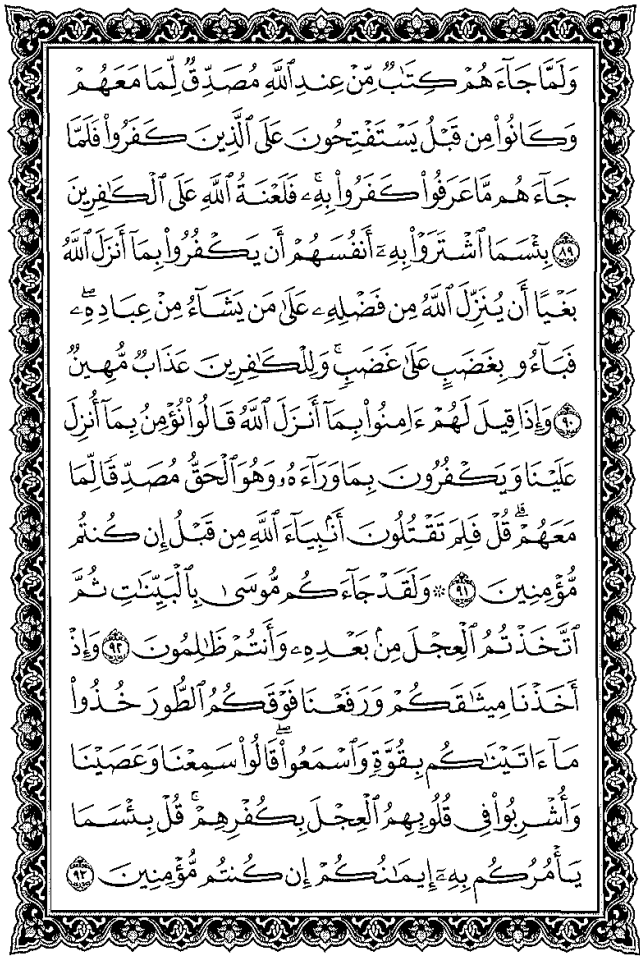 وَلَمَّا جَآءَهُمْ كِتَٰبٌ مِّنْ عِندِ ٱللَّهِ مُصَدِّقٌ لِّمَا مَعَهُمْ
وَكَانُوا۟ مِن قَبْلُ يَسْتَفْتِحُونَ عَلَى ٱلَّذِينَ كَفَرُوا۟ فَلَمَّا
جَآءَهُم مَّا عَرَفُوا۟ كَفَرُوا۟ بِهِۦ ۚ فَلَعْنَةُ ٱللَّهِ عَلَى ٱلْكَٰفِرِينَ
٨٩ بِئْسَمَا ٱشْتَرَوْا۟ بِهِۦٓ أَنفُسَهُمْ أَن يَكْفُرُوا۟ بِمَآ أَنزَلَ ٱللَّهُ
بَغْيًا أَن يُنَزِّلَ ٱللَّهُ مِن فَضْلِهِۦ عَلَىٰ مَن يَشَآءُ مِنْ عِبَادِهِۦ ۖ
فَبَآءُو بِغَضَبٍ عَلَىٰ غَضَبٍ ۚ وَلِلْكَٰفِرِينَ عَذَابٌ مُّهِينٌ
٩٠ وَإِذَا قِيلَ لَهُمْ ءَامِنُوا۟ بِمَآ أَنزَلَ ٱللَّهُ قَالُوا۟ نُؤْمِنُ بِمَآ أُنزِلَ
عَلَيْنَا وَيَكْفُرُونَ بِمَا وَرَآءَهُۥ وَهُوَ ٱلْحَقُّ مُصَدِّقًا لِّمَا
مَعَهُمْ ۗ قُلْ فَلِمَ تَقْتُلُونَ أَنۢبِيَآءَ ٱللَّهِ مِن قَبْلُ إِن كُنتُم
مُّؤْمِنِينَ ٩١ ۞ وَلَقَدْ جَآءَكُم مُّوسَىٰ بِٱلْبَيِّنَٰتِ ثُمَّ
ٱتَّخَذْتُمُ ٱلْعِجْلَ مِنۢ بَعْدِهِۦ وَأَنتُمْ ظَٰلِمُونَ ٩٢ وَإِذْ
أَخَذْنَا مِيثَٰقَكُمْ وَرَفَعْنَا فَوْقَكُمُ ٱلطُّورَ خُذُوا۟
مَآ ءَاتَيْنَٰكُم بِقُوَّةٍ وَٱسْمَعُوا۟ ۖ قَالُوا۟ سَمِعْنَا وَعَصَيْنَا
وَأُشْرِبُوا۟ فِى قُلُوبِهِمُ ٱلْعِجْلَ بِكُفْرِهِمْ ۚ قُلْ بِئْسَمَا
يَأْمُرُكُم بِهِۦٓ إِيمَٰنُكُمْ إِن كُنتُم مُّؤْمِنِينَ ٩٣